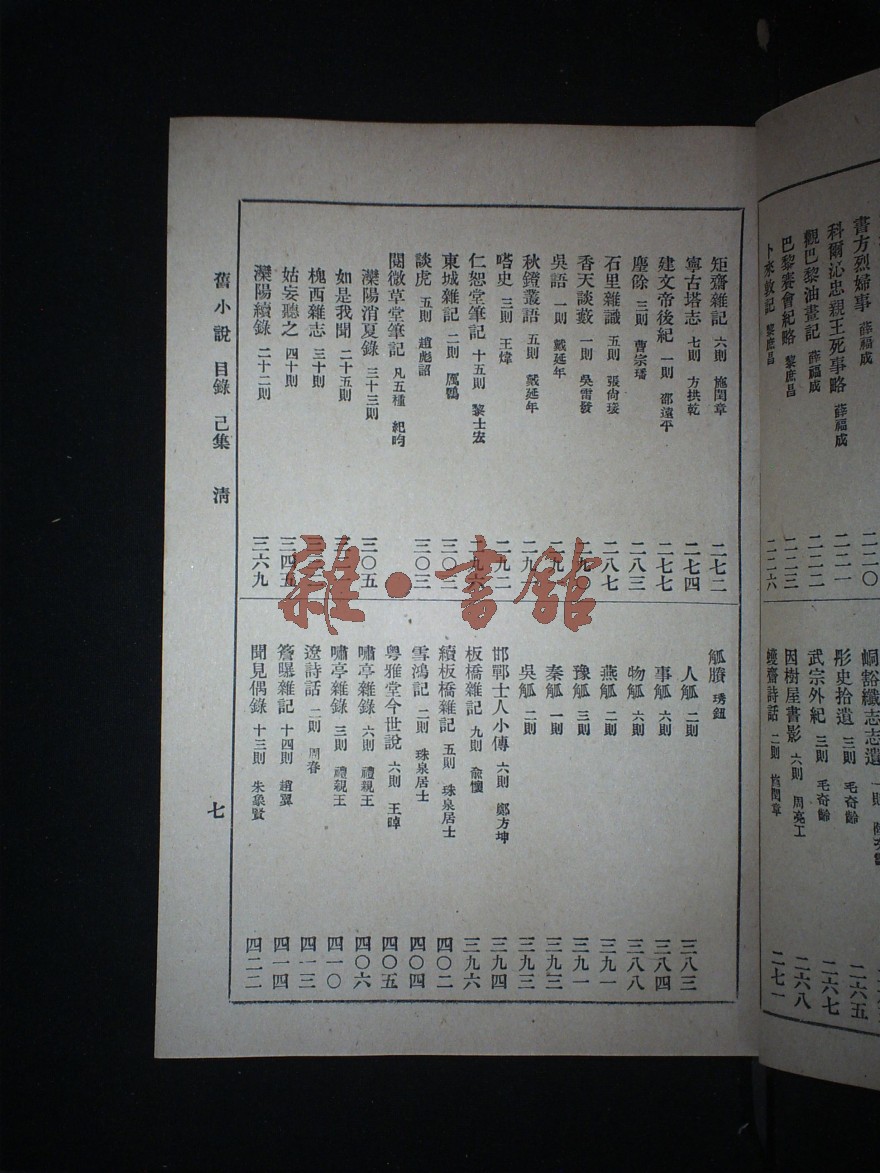 書方烈婦事 薛福成 二二〇
科爾沁忠親王死事略 薛福成 二二一
觀巴黎油畫記 薛福成 二二二
巴黎賽會紀略 黎庶昌 二二三
卜來敦記 黎庶昌 二二六
峒谿纖志志遺 一則
彤史拾遺 三則 毛奇齡 二六五
武宗外紀 三則 毛奇齡 二六七
因樹屋書影 六則 周亮工 二六八
蠖齋詩話 二則 施閏章 二七一
矩齋雜記 六則 施閏章 二七二
寧古塔志 七則 方拱乾 二七四
建文帝後紀 一則 邵遠平 二七七
塵餘 三則 曹宗璠 二八三
石里雜識 五則 張尚瑗 二八七
香天談藪 一則 吳雷發 二九〇
吳語 一則 戴延年
秋鐙叢語 五則 戴延年
嗒史 三則 王煒 二九二
仁恕堂筆記 十五則 黎士宏 二九六
東城雜記 二則 厲鶚 三〇二
談虎 五則 趙彪詔 三〇三
閱微草堂筆記 凡五種 紀昀
灤陽消夏錄 三十三則 三〇五
如是我聞 二十五則
槐西雜志 三十則
姑妄聽之 四十則 三四五
灤陽續錄 二十二則 三六九
觚賸 琇鈕
人觚 二則 三八三
事觚 六則 三八四
物觚 六則 三八八
燕觚 二則 三九一
豫觚 三則 三九一
秦觚 一則 三九二
吳觚 二則 三九三
邯鄲士人小傳 六則 鄭方坤 三九四
板橋雜記 九則 俞懷 三九六
續板橋雜記 五則 珠泉居士 四〇二
雪鴻記 二則 珠泉居士 四〇四
粵雅堂今世說 六則 王晫 四〇五
嘯亭雜錄 六則 禮親王 四〇六
嘯亭雜錄 三則 禮親王 四一〇
遼詩話 二則 周春 四一三
簷曝雜記 十四則 趙翼 四一四
聞見偶錄 十三則 朱象賢 四二二
舊小說 目錄 己集 清 七
雜·書館